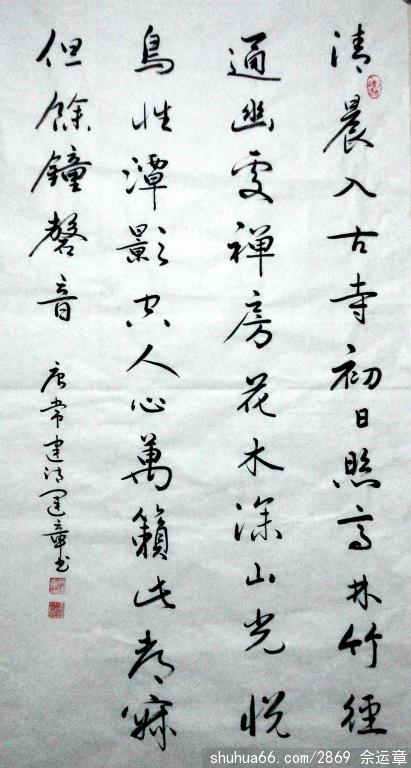 清晨入古寺初日照高林竹徑
通幽處禅房花木深山光悦
鳥性潭影空人心萬籟此都寂
但餘鐘磬音
唐常建诗運章书
shuhua66.com/2869 佘运章